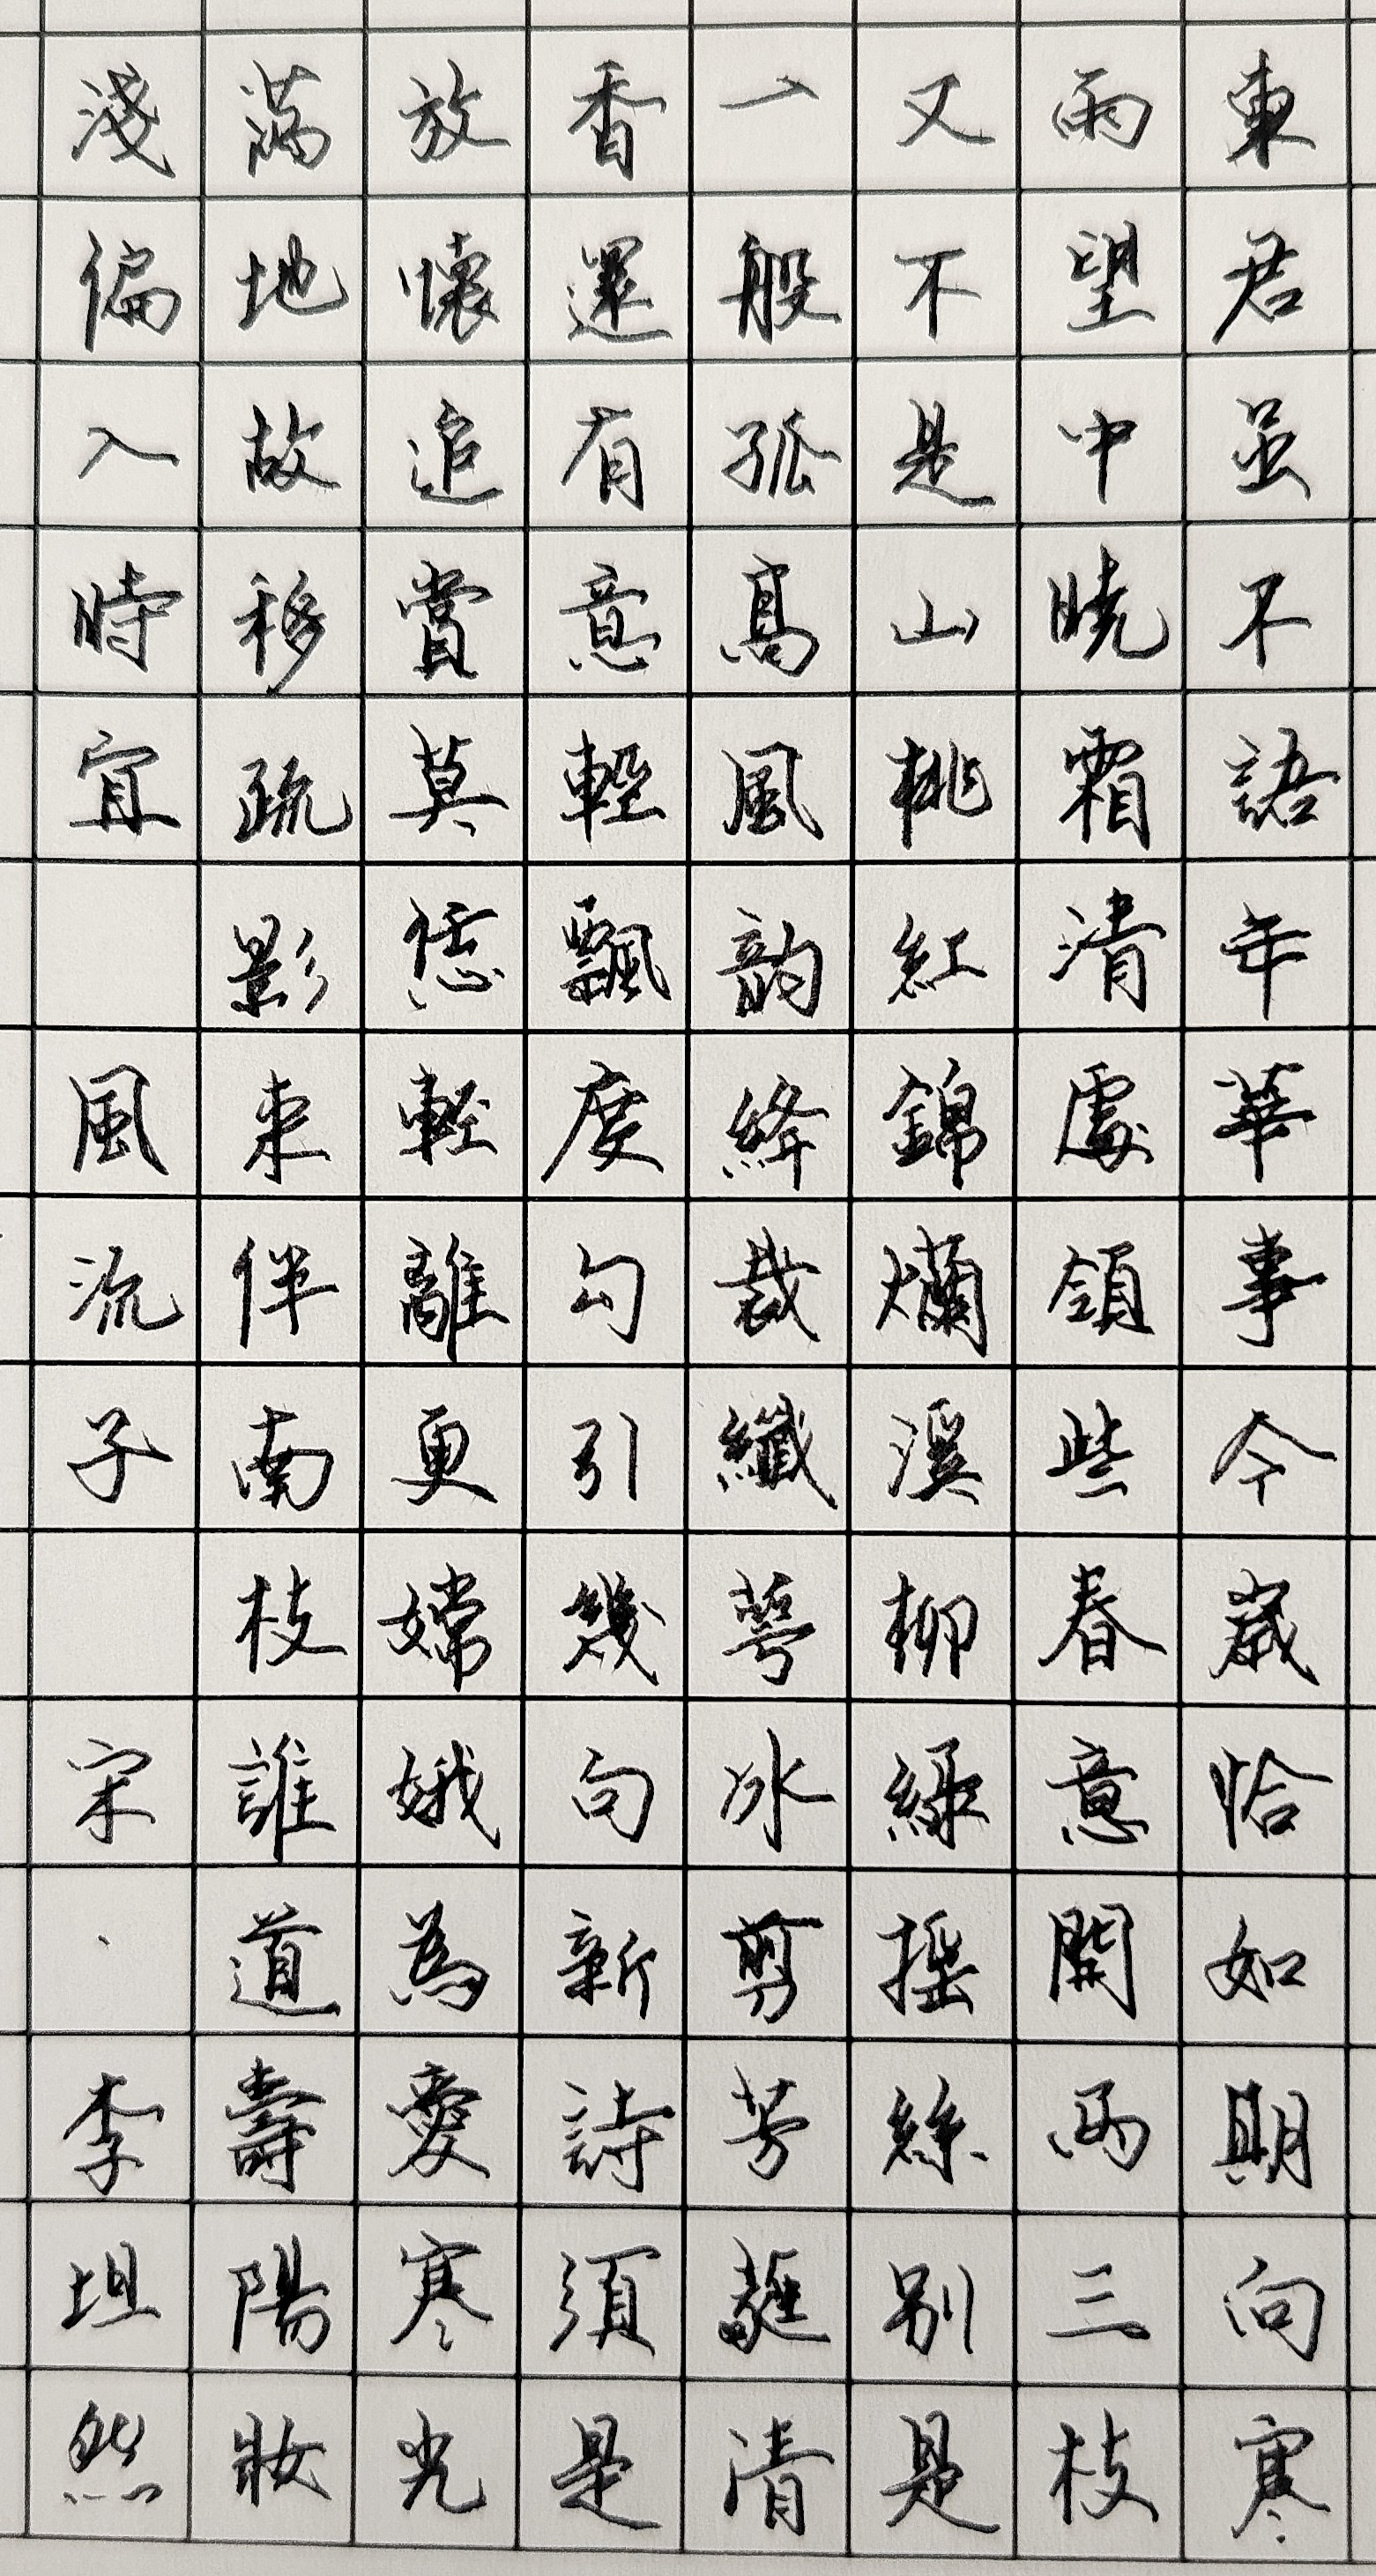 東君虽不語年華事今歲恰如期向寒
雨望中曉霜清處領些春意開兩三枝
又不是山桃紅錦爛溪柳綠摇絲别是
一般孤高風韵絳裁纖萼冰剪芳蕤清
香還有意輕飄度勾引幾句新詩須是
放懷追賞莫恁輕離更嫦娥為愛寒光
滿地故移疏影來伴南枝誰道壽陽妝
淺偏入時宜 風流子 宋·李坦然